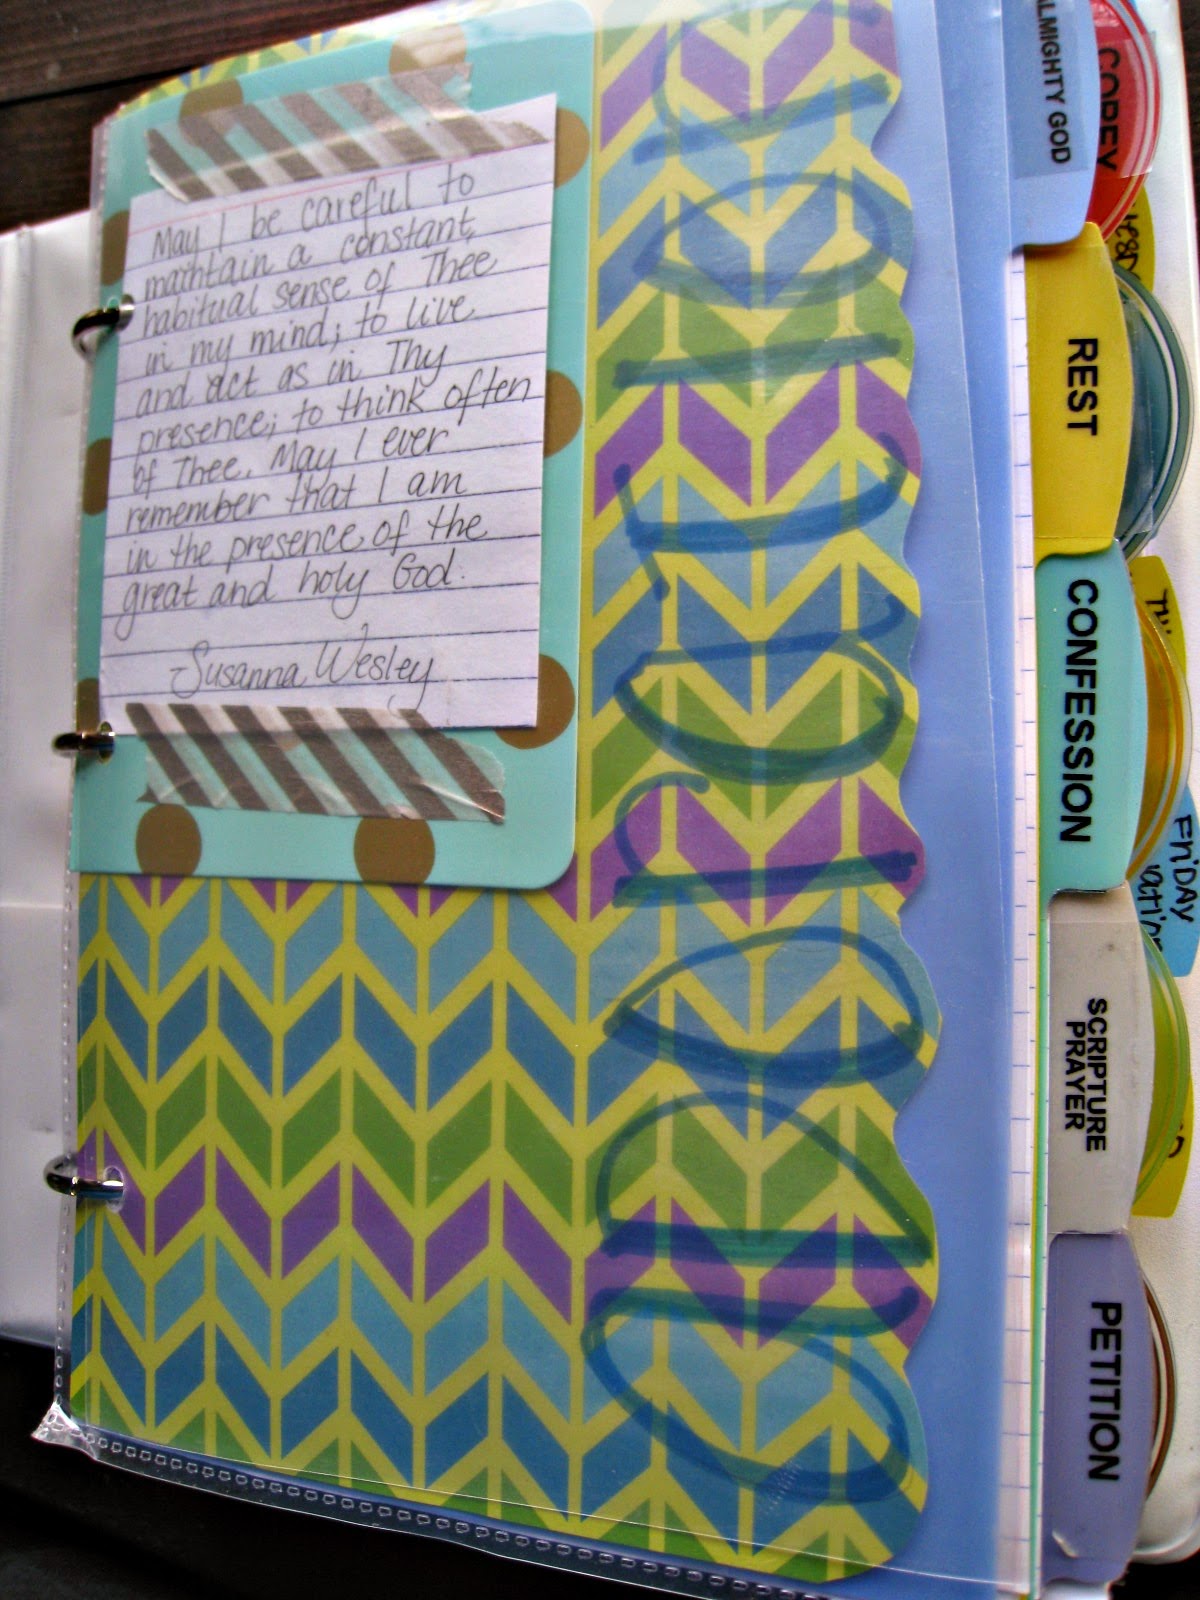 May I be careful to
maintain a constant,
habitual sense of Thee
in my mind; to live
and act as in Thy
presence; to think often
of Thee. May I ever
remember that I am
in the presence of the
great and holy God.
-Susanna Wesley
adoration
ALMIGHTY GOD
COREY
REST
CONFESSION
FriDAY
SCRIPTURE
PRAYER
PETITION